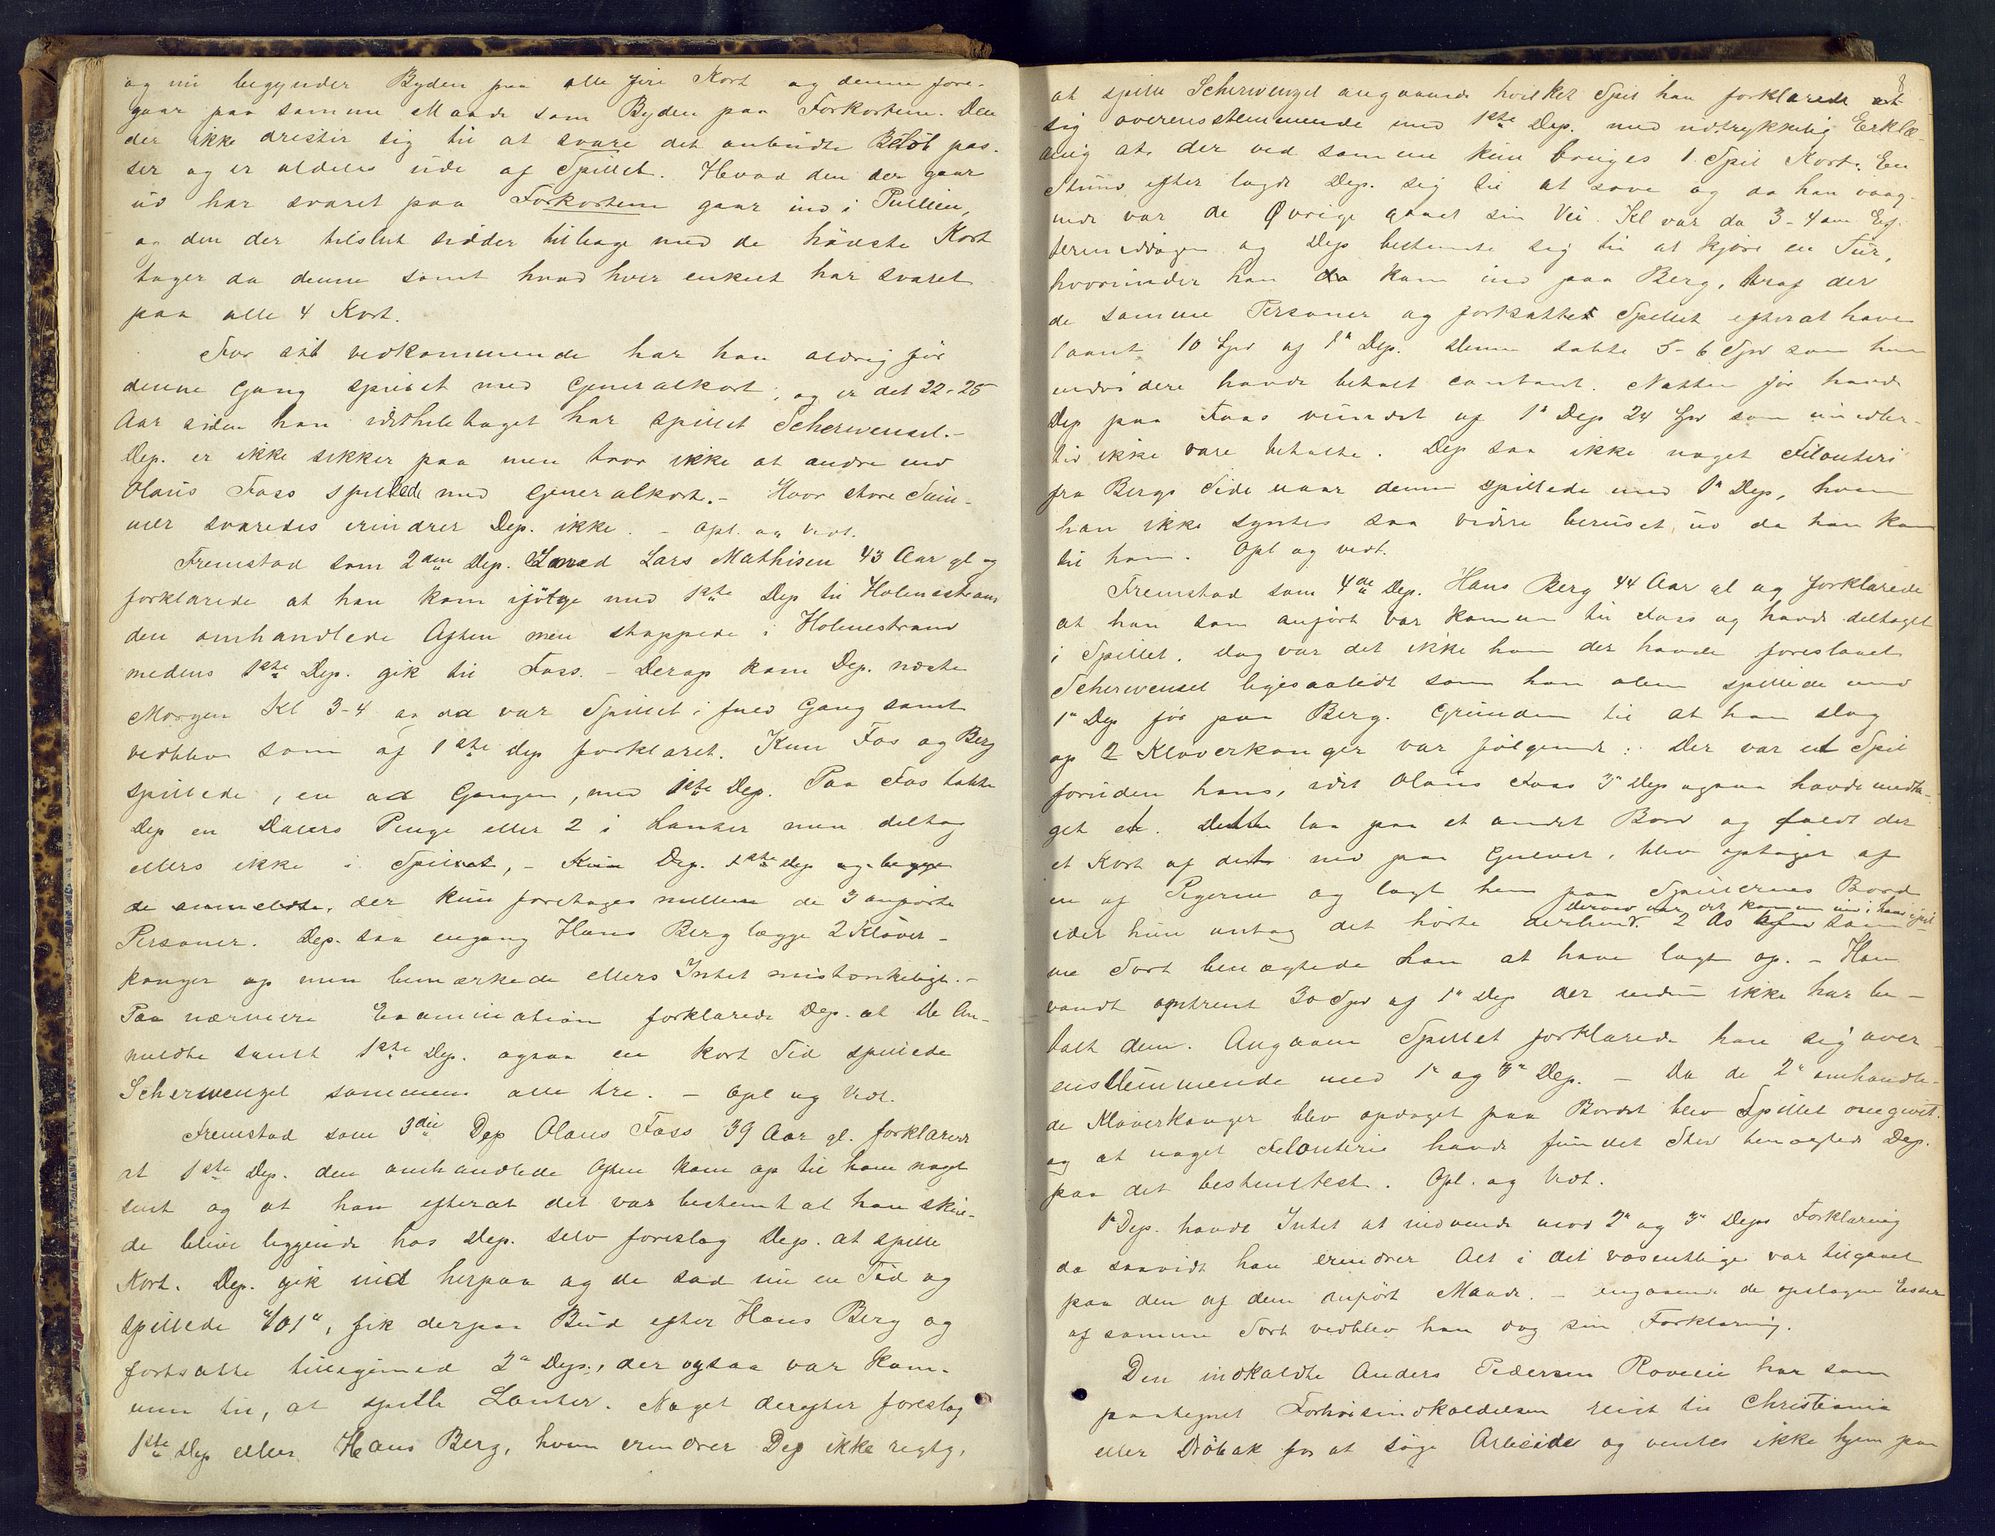 og nu begynder Byden paa alle fire Kort og denne fore-
gaar paa samme Maade som Byden paa Forkortene. Den
der ikke drister sig til at svare det anbudte Beløb pas-
ser og er aldeles ude af Spillet. Hvad den der gaar
ud har svaret paa Forkortene gaar ind i Pullien,
og den der tilslut sidder tilbage med de høieste Kort
tager da denne samt hvad hver enkelt har svaret
paa alle 4 Kort.
For sit vedkommende har han aldrig før
denne Gang spillet med Generalkort, og er det 22-25
Aar siden han idethele taget har spillet Scherwensel.-
Dep. er ikke sikker paa men tror ikke at andre end
Olaus Foss spillede med Generalkort. - Hvor store Sum-
mer svaredes erindrer Dep. ikke. - Opl. og Vedt.
Fremstod som 2den Dep. Lars Mathisen 43 Aar gl og
forklarede at han kom ifølge med 1ste Dep til Holmestrand
den omhandlede Aften men stoppede i Holmestrand
medens 1ste Dep. gik til Foss. - Derop kom Dep. næste
Morgen Kl 3-4 og da var Spillet i fuld Gang samt
vedblev som af 1ste Dep forklaret. Kun Fos og Berg
spillede, en ad Gangen, med 1ste Dep. Paa Fos tabte
Dep en Dalers Penge eller 2 i Lanter men deltog
ellers ikke i Spillet, - Kun Dep. 1ste Dep og begge
de anmeldte, der kun foretoges mellem de 3 anførte
Personer. Dep. saa engang Hans Berg lægge 2 Kløver-
konger op men bemærkede ellers Intet mistænkeligt. -
Paa nærmere Examination forklarede Dep. at De An-
meldte samt 1ste Dep. ogsaa en kort Tid spillede
Scherwenzel sammen alle tre. - Opl og Vedt.
Fremstod som 3die Dep Olaus Foss 39 Aar gl. forklarede
at 1ste Dep. den omhandlede Aften kom op til ham noget
sent og at han efterat det var bestemt at han skul-
de blive liggende hos Dep. selv foreslog Dep. at spille
Kort. Dep. gik ind herpaa og de sad nu en Tid og
spillede "101", fik derpaa Bud efter Hans Berg og
fortsatte tilligemed 2n Dep., der ogsaa var kom-
men til, at spille Lanter. Noget derefter foreslog
1ste Dep eller Hans Berg, hvem erindrer Dep ikke rigtig,
at spille Scherwenzel angaaende hvilket Spil han forklarede
sig overensstemmende med 1ste Dep. med udtrykkelig Erklæ-
ring at der ved samme kun bruges 1 Spil Kort. En
Stund efter lagde Dep. sig til at sove og da han vaag-
nede var de Øvrige gaaet sin Vei. Kl var da 3-4 om Ef-
termiddagen og Dep bestemte sig til at kjøre en Tur,
hvorunder han da kom ind paa Berg, traf der
de samme Personer og fortsatte Spillet efterat have
laant 10 Spd af 1n Dep. Denne tabte 5-6 Spd som han
endvidere havde betalt contant. Natten før havde
Dep paa Foss vundet af 1n Dep 24 Spd som imidler-
tid ikke vare betalte. Dep saa ikke noget Filouteri
fra Bergs Side naar denne spillede med 1n Dep, hvem
han ikke syntes saa videre beruset ud da han kom
til ham. Opl og vedt.
Fremstod som 4de Dep. Hans Berg 44 Aar gl og forklarede
at han som anført var kommen til Foss og havde deltaget
i Spillet. Dog var det ikke ham der havde foreslaaet
Scherwensel ligesaalidt som han alene spillede med
1n Dep før paa Berg. Grunden til at han slog
op 2 Kløverkonger var følgende: Der var et Spil
foruden hans, idet Olaus Foss 3n Dep ogsaa havde medta-
get et. Dette laa paa et andet Bord og faldt der
et Kort af det ned paa Gulvet, blev optaget af
en af Pigerne og lagt hen paa Spillernes Bord
idet hun antog det hørte derhen
derved var det kommen ind i hans Spil
. 2 Æs af sam-
me Sort benægtede han at have lagt op. - Han
vandt omtrent 30 Spd af 1n Dep der endnu ikke har be-
talt dem. Angaaende Spillet forklarede han sig over-
ensstemmende med 1n og 3n Dep. - Da de 2n omhandle-
de Kløverkonger blev opdaget paa Bordet blev Spillet omgivet.
og at noget Filouteri havde fundet Sted benægtede Dep.
paa det bestemteste. Opl. og Vedt.
1n Dep. havde Intet at indvende mod 2n og 3n Deps Forklaring
da saavidt han erindrer Alt i det væsentlige var tilgaaet
paa den af dem anført Maade. - angaaende de opslagne Esser
af samme Sort vedblev han dog sin Forklaring.
Den indkaldte Anders Pedersen Roveie har som
paategnet Forhørsindkaldelsen reist til Christiania
eller Drøbak for at søge Arbeide og ventes ikke hjem paa